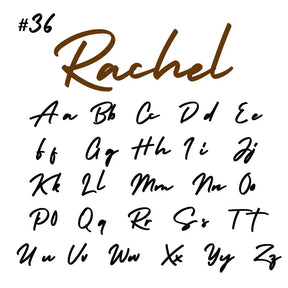 #36
Rachel
Aa Bb Cc Dd Ee
Ff Gg Hh Ii Jj
Kk Ll Mm Nn Oo
Pp Qq Rr Ss Tt
Uu Vv Ww Xx Yy Zz